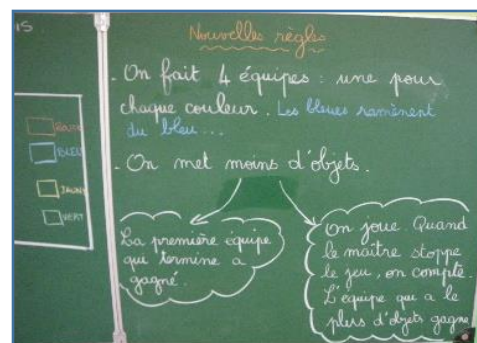 IS
Nouvelles règles
. On fait 4 équipes : une pour
chaque couleur. Les bleues ramènent
du bleu...
. On met moins d'objets.
La première équipe
qui termine a
gagné.
On joue. Quand
le maître stoppe
le jeu, on compte.
L'équipe qui a le
plus d'objets gagne
BLEU
JAUNE
VERT